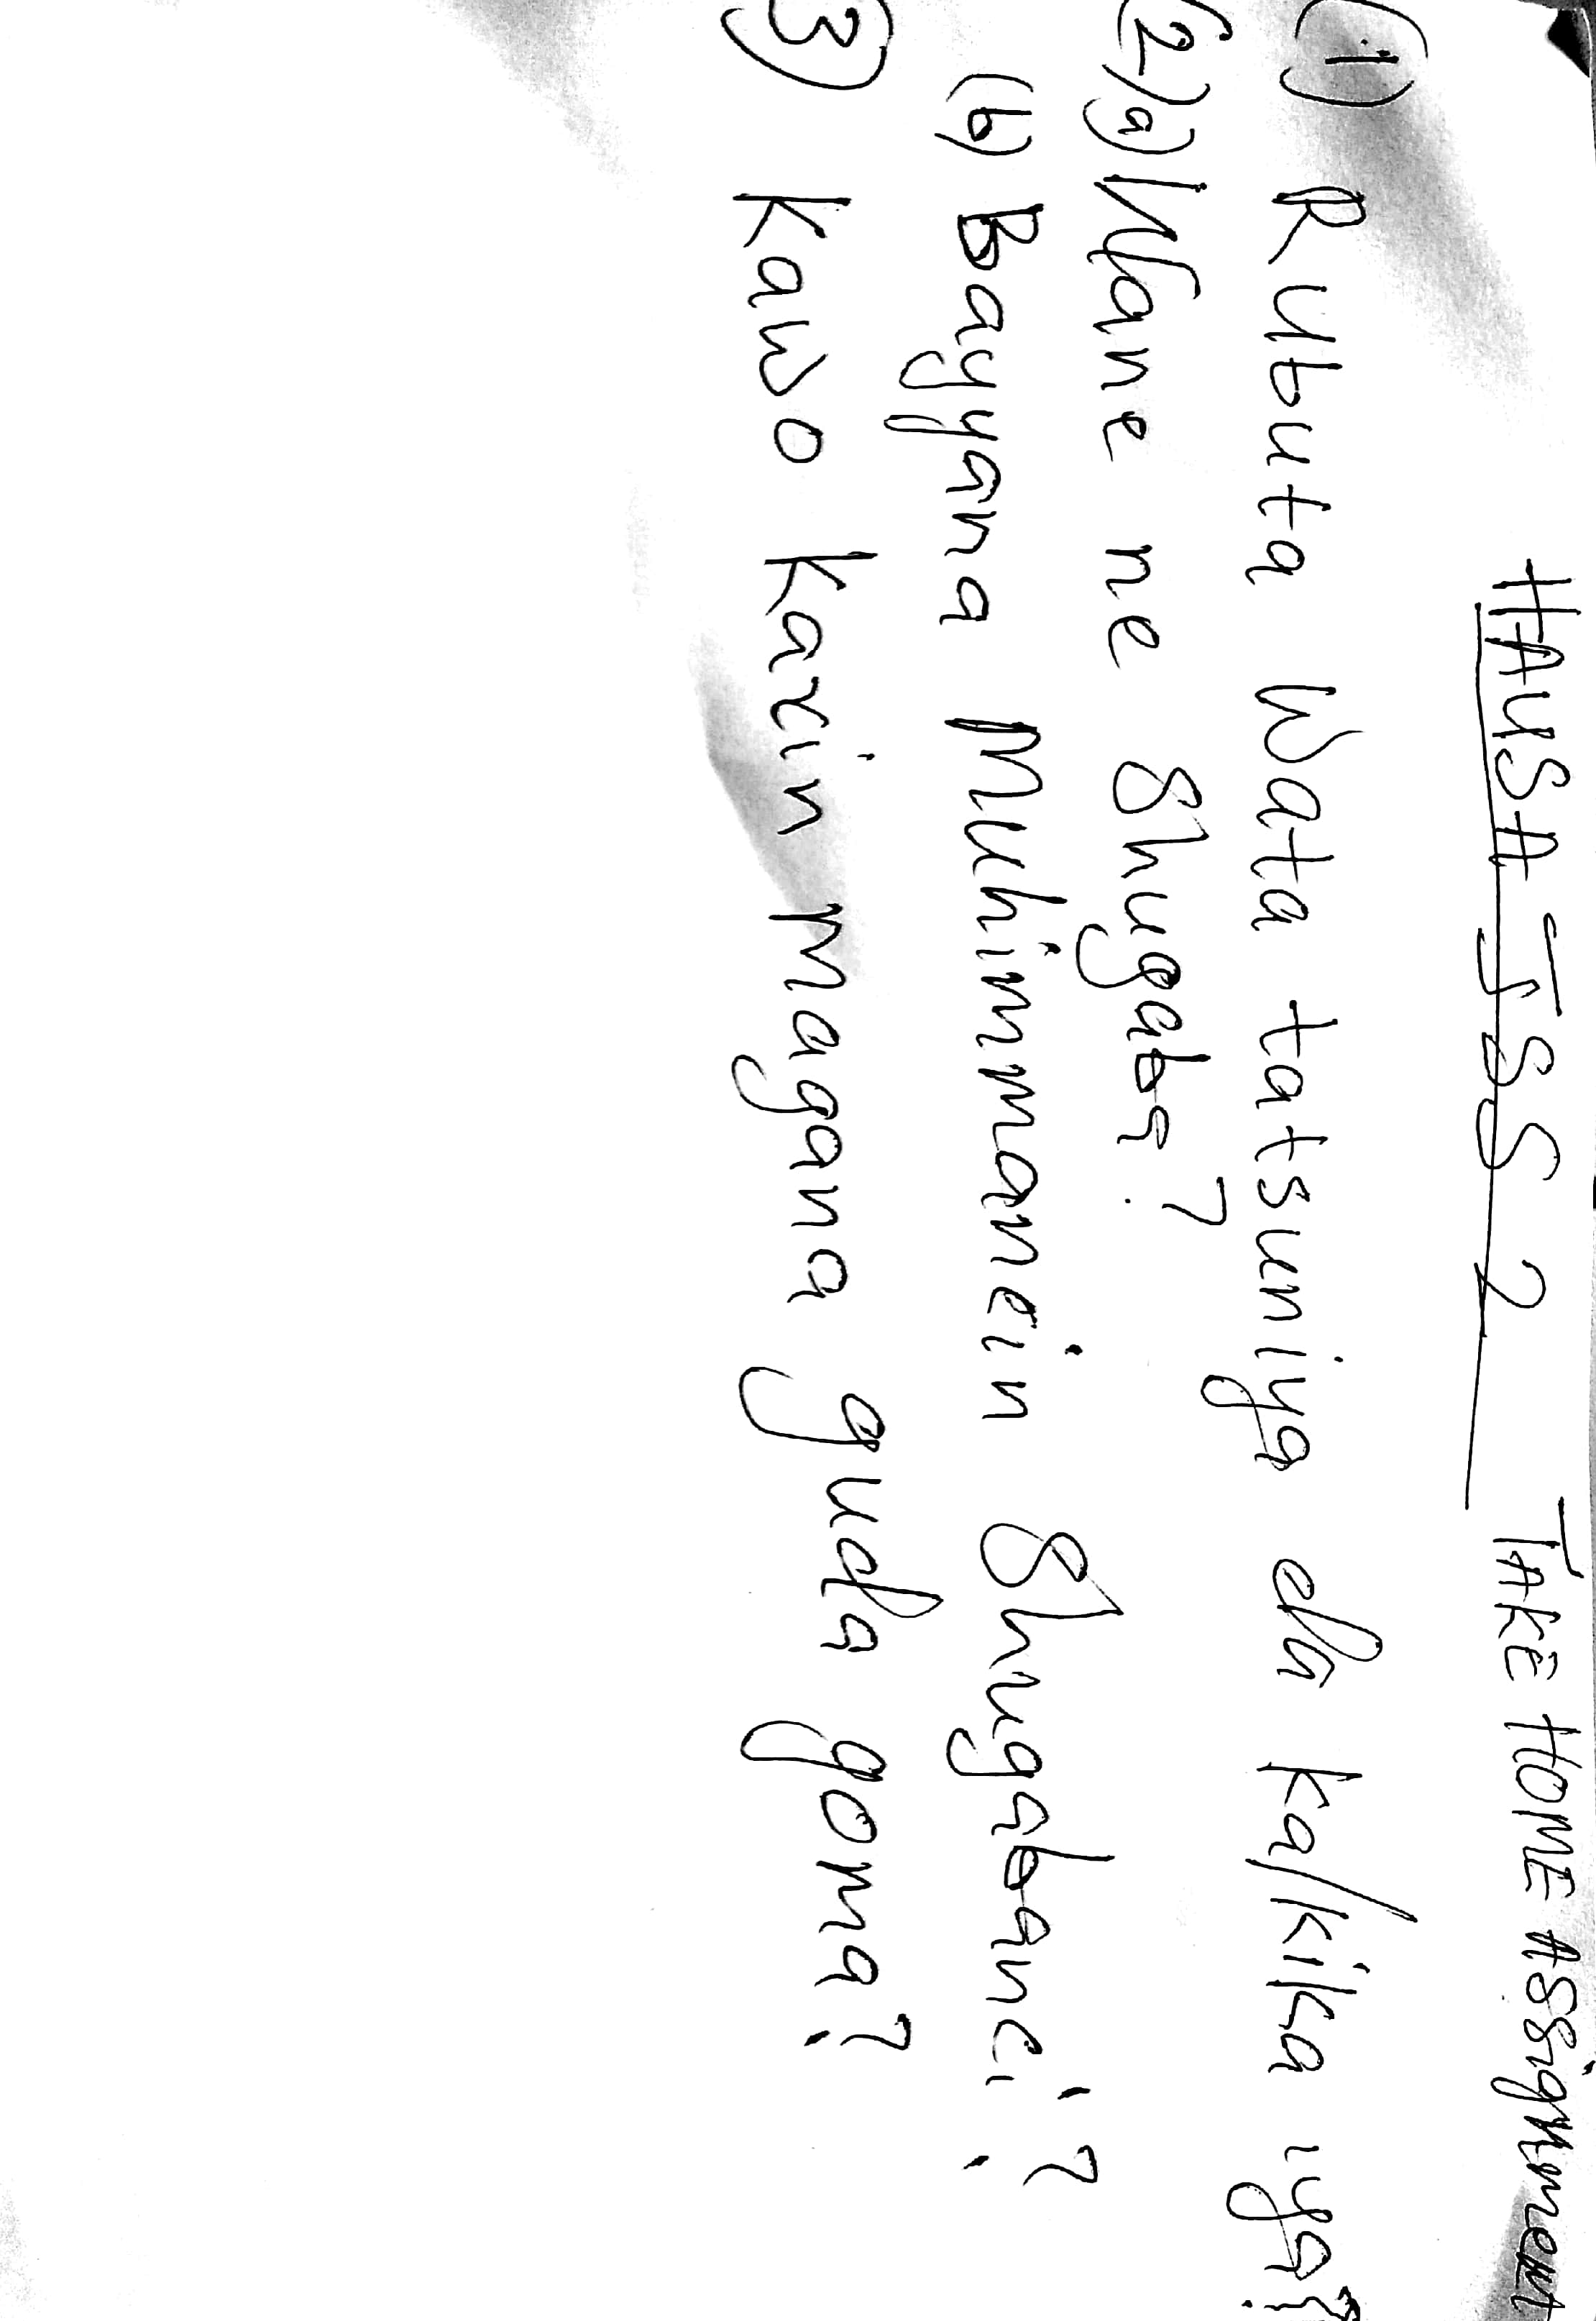 HAUSA JSS 2 TAKE HOME ASSIGNMENT
(1) Rubuta Wata tatsuniya da ka/kika iya?
(2)(a) Wane ne Shugaba?
(b) Bayyana Muhimmancin Shugabanci?
3) Kawo Karin magana guda goma?